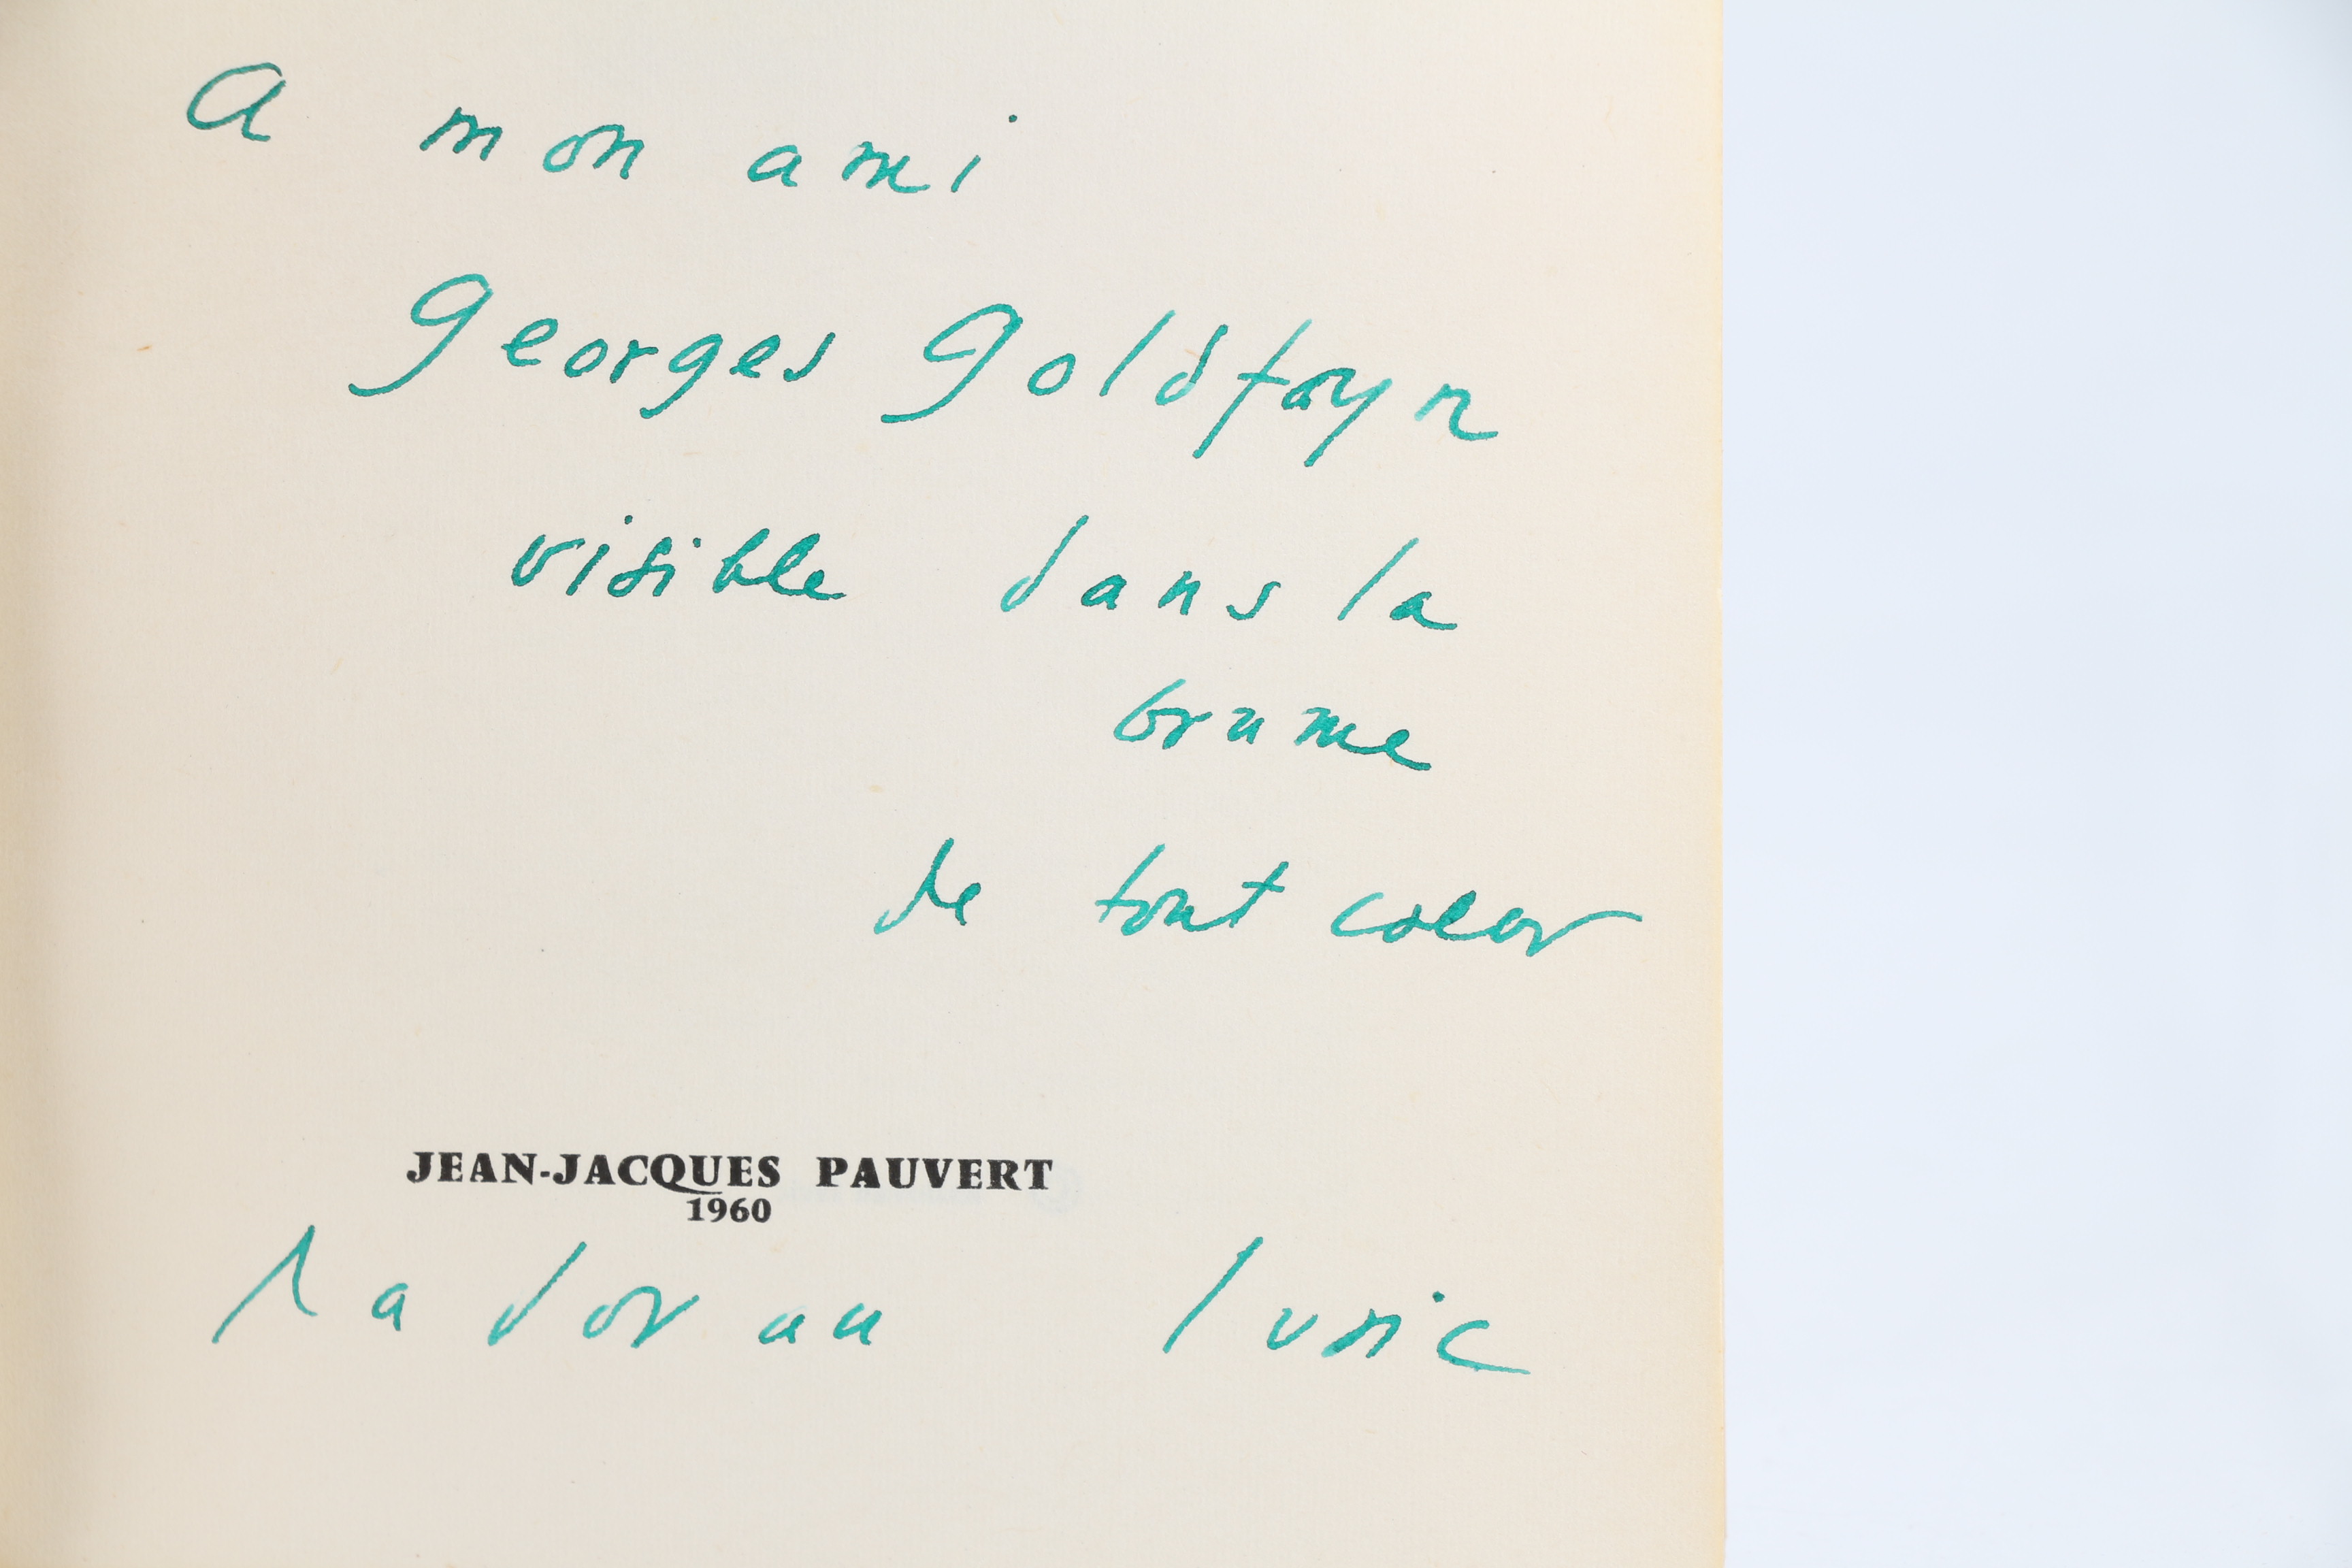 A mon ami
Georges Goldfayn
visible dans la
brume
de tout coeur
JEAN-JACQUES PAUVERT
1960
Radovan Ivsic